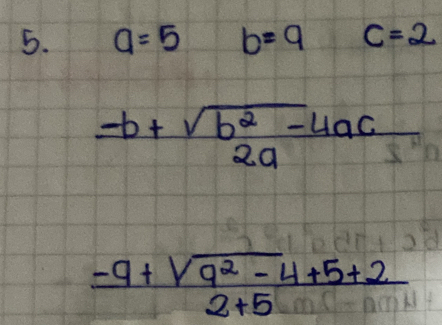 5. a=5 b=9 c=2
-b+√b² -4ac
2a
-9+√9² -4+5+2
2+5